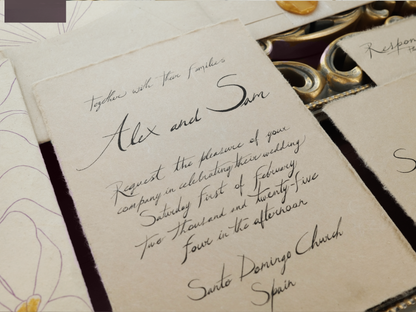 Together with their families
Alex and Sam
Request the pleasure of your
company in celebrating their wedding
Saturday First of February
Two thousand and twenty-five
Four in the afternoon
Santo Domingo Church
Spain
Respon